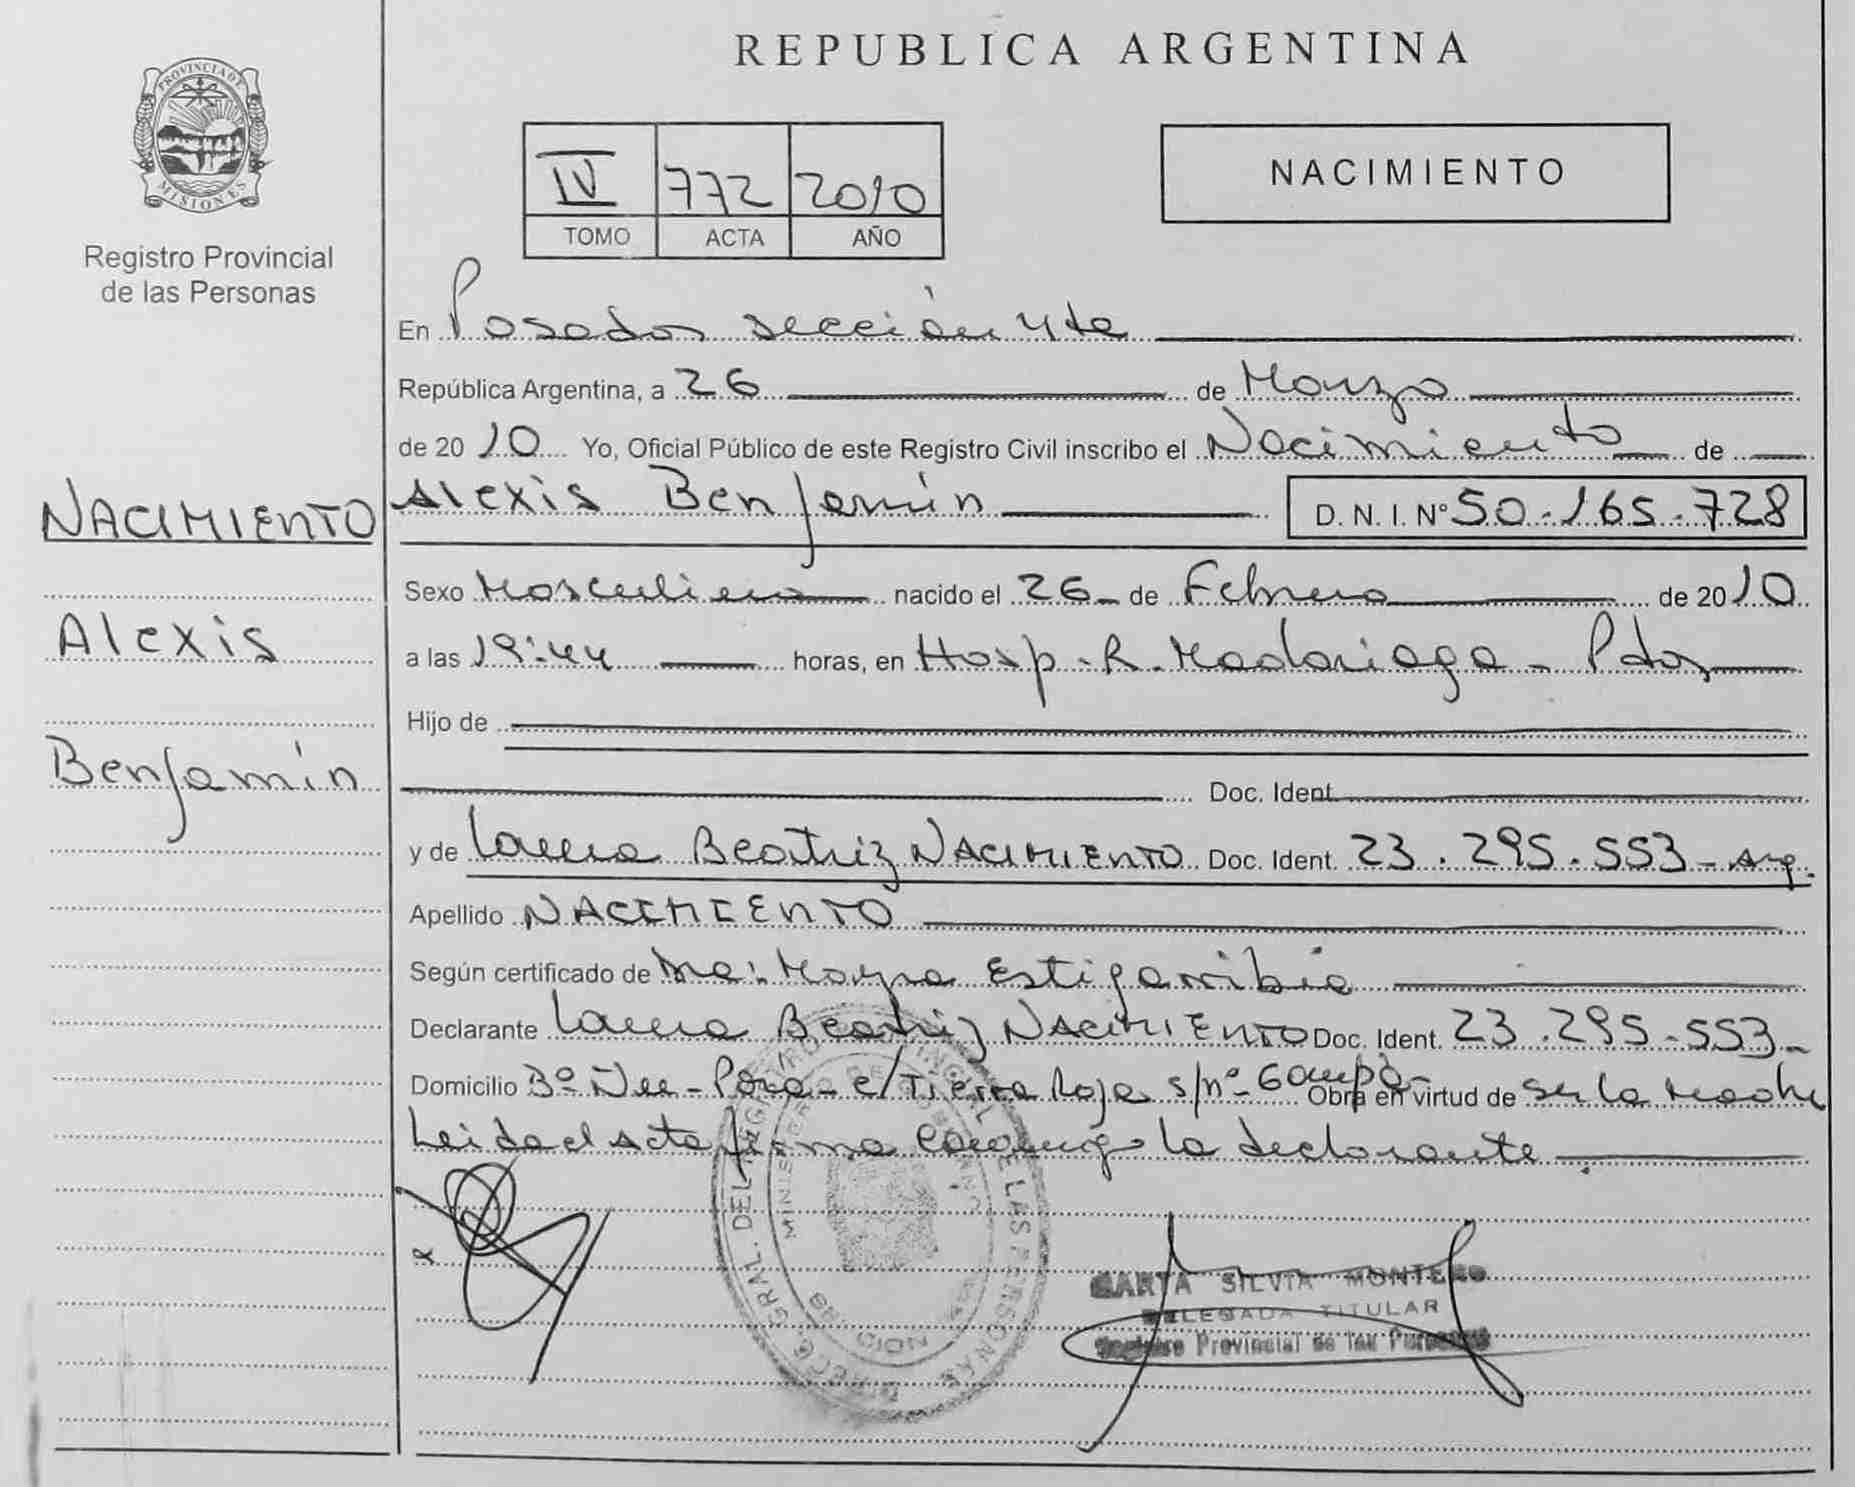 REPUBLICA ARGENTINA
PROVINCIA DE
MISIONES
Registro Provincial
de las Personas
IV 772 2010
TOMO ACTA AÑO
NACIMIENTO
En Posadas sección 4ta
República Argentina, a 26 de Marzo
de 2010 Yo, Oficial Público de este Registro Civil inscribo el Nacimiento de
Alexis Benjamín D. N. I. Nº 50.165.728
NACIMIENTO
Alexis
Benjamín
Sexo Masculino nacido el 26 de Febrero de 2010
a las 19:44 horas, en Hosp. R. Madariaga - Pdas
Hijo de
Doc. Ident.
y de Laura Beatriz NACIMIENTO Doc. Ident. 23.295.553 - Arg.
Apellido NACIMIENTO
Según certificado de Estigarribia
Declarante Laura Beatriz NACIMIENTO Doc. Ident. 23.295.553-
Domicilio Bº Ñu - Pora - c/ Tierra Roja s/nº- Garupá- Obra en virtud de ser la madre
Leida el acta firma conmigo la declarante
MARTA SILVIA MONTERO
DELEGADA TITULAR
Registro Provincial de las Personas